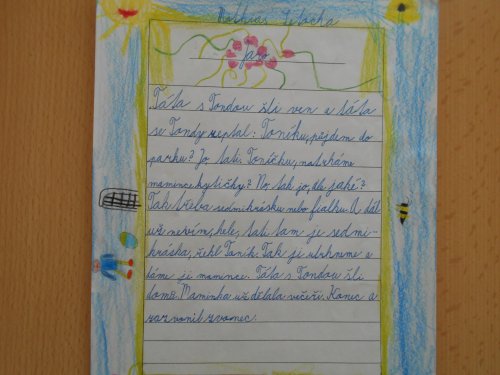 Mathias
Jaro
Táta s Tondou šli ven a táta
se Tondy zeptal: Toníku, půjdem do
parku? Jo tati. Toníčku, natrháme
mamince kytičky? No tak jo, ale jaké?
Tak třeba sedmikrásku nebo fialku. A dál
už nevím, hele, tati tam je sedmi-
kráska, řekl Toník. Tak ji utrhneme a
dáme ji mamince. Táta s Tondou šli
domů. Maminka už dělala večeři. Konec a
zazvonil zvonec.